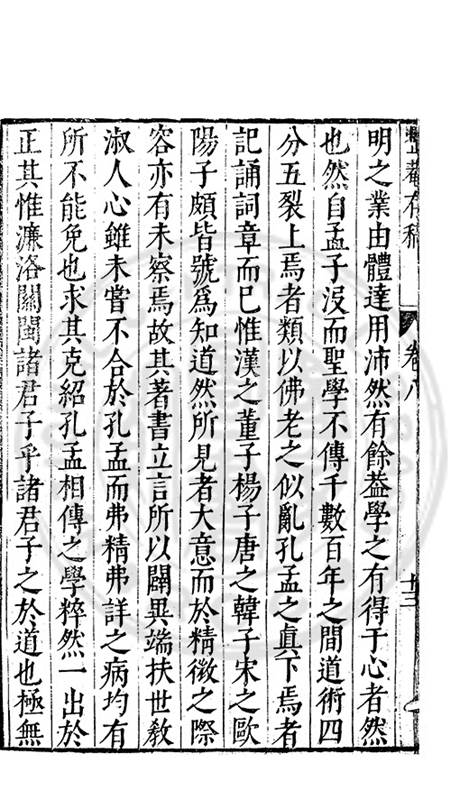 整菴存稿 卷八 十三
明之業由體達用沛然有餘葢學之有得于心者然
也然自孟子沒而聖學不傳千數百年之間道術四
分五裂上焉者類以佛老之似亂孔孟之眞下焉者
記誦詞章而已惟漢之董子楊子唐之韓子宋之歐
陽子頗皆號爲知道然所見者大意而於精微之際
容亦有未察焉故其著書立言所以闢異端扶世教
淑人心雖未嘗不合於孔孟而弗精弗詳之病均有
所不能免也求其克紹孔孟相傳之學粹然一出於
正其惟濂洛關閩諸君子乎諸君子之於道也極無